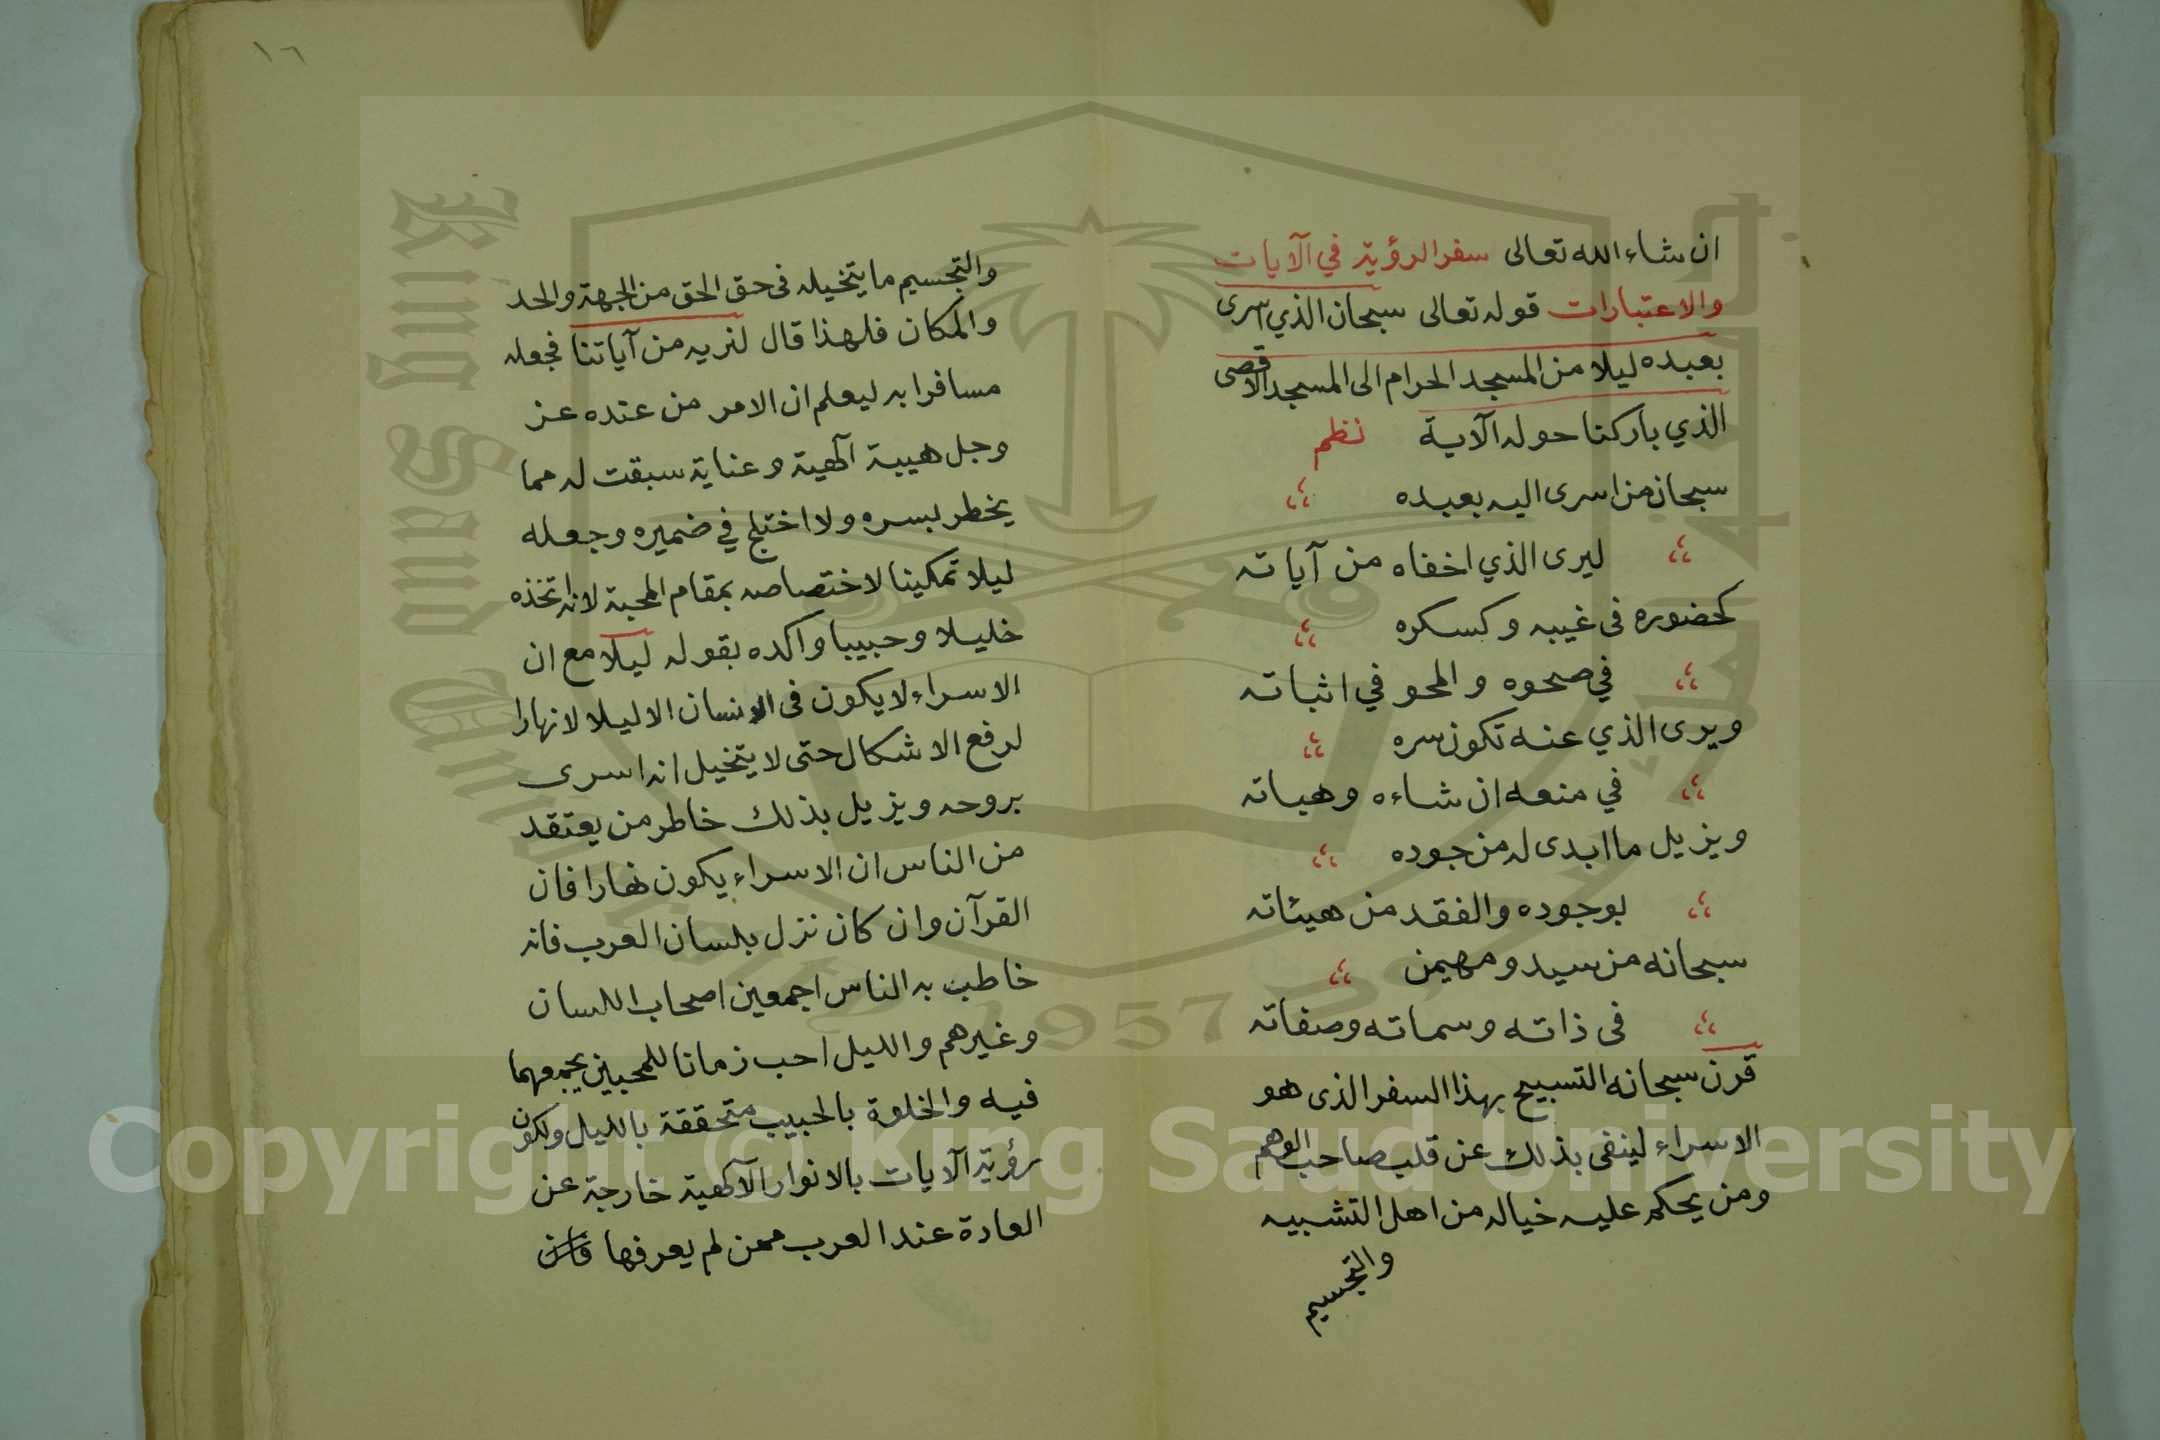 ان شاء الله تعالى سفر الرؤية في الآيات
والاعتبارات قوله تعالى سبحان الذي اسرى
بعبده ليلا من المسجد الحرام الى المسجد الاقصى
الذي باركنا حوله الآية نظم
سبحان من اسرى اليه بعبده
ليرى الذي اخفاه من آياته
كحضوره فى غيبه وكسكره
في صحوه والمحو في اثباته
ويرى الذي عنه تكون سره
في منعه ان شاءه وهباته
ويزيل ما ابدى له من جوده
بوجوده والفقد من هيئاته
سبحانه من سيد ومهيمن
فى ذاته وسماته وصفاته
قرن سبحانه التسبيح بهذا السفر الذى هو
الاسراء لينفى بذلك عن قلب صاحب الوهم
ومن يحكم عليه خياله من اهل التشبيه
والتجسيم
١٦
والتجسيم ما يتخيله فى حق الحق من الجهة والحد
والمكان فلهذا قال لنريه من آياتنا فجعله
مسافرا به ليعلم ان الامر من عنده عز
وجل هيبة آلهية وعناية سبقت له مما
يخطر بسره ولا اختلج في ضميره وجعله
ليلا تمكينا لاختصاصه بمقام المحبة لانه اتخذه
خليلا وحبيبا واكده بقوله ليلا مع ان
الاسراء لا يكون فى الانسان الا ليلا لا نهارا
لرفع الاشكال حتى لا يتخيل انه اسرى
بروحه ويزيل بذلك خاطر من يعتقد
من الناس ان الاسراء يكون نهارا فان
القرآن وان كان نزل بلسان العرب فانه
خاطب به الناس اجمعين اصحاب اللسان
وغيرهم والليل احب زمانا للمحبين يجمعهما
فيه والخلوة بالحبيب متحققة بالليل ولكون
رؤية الآيات بالانوار الآلهية خارجة عن
العادة عند العرب ممن لم يعرفها
King Saud University
1957
Copyright © King Saud University